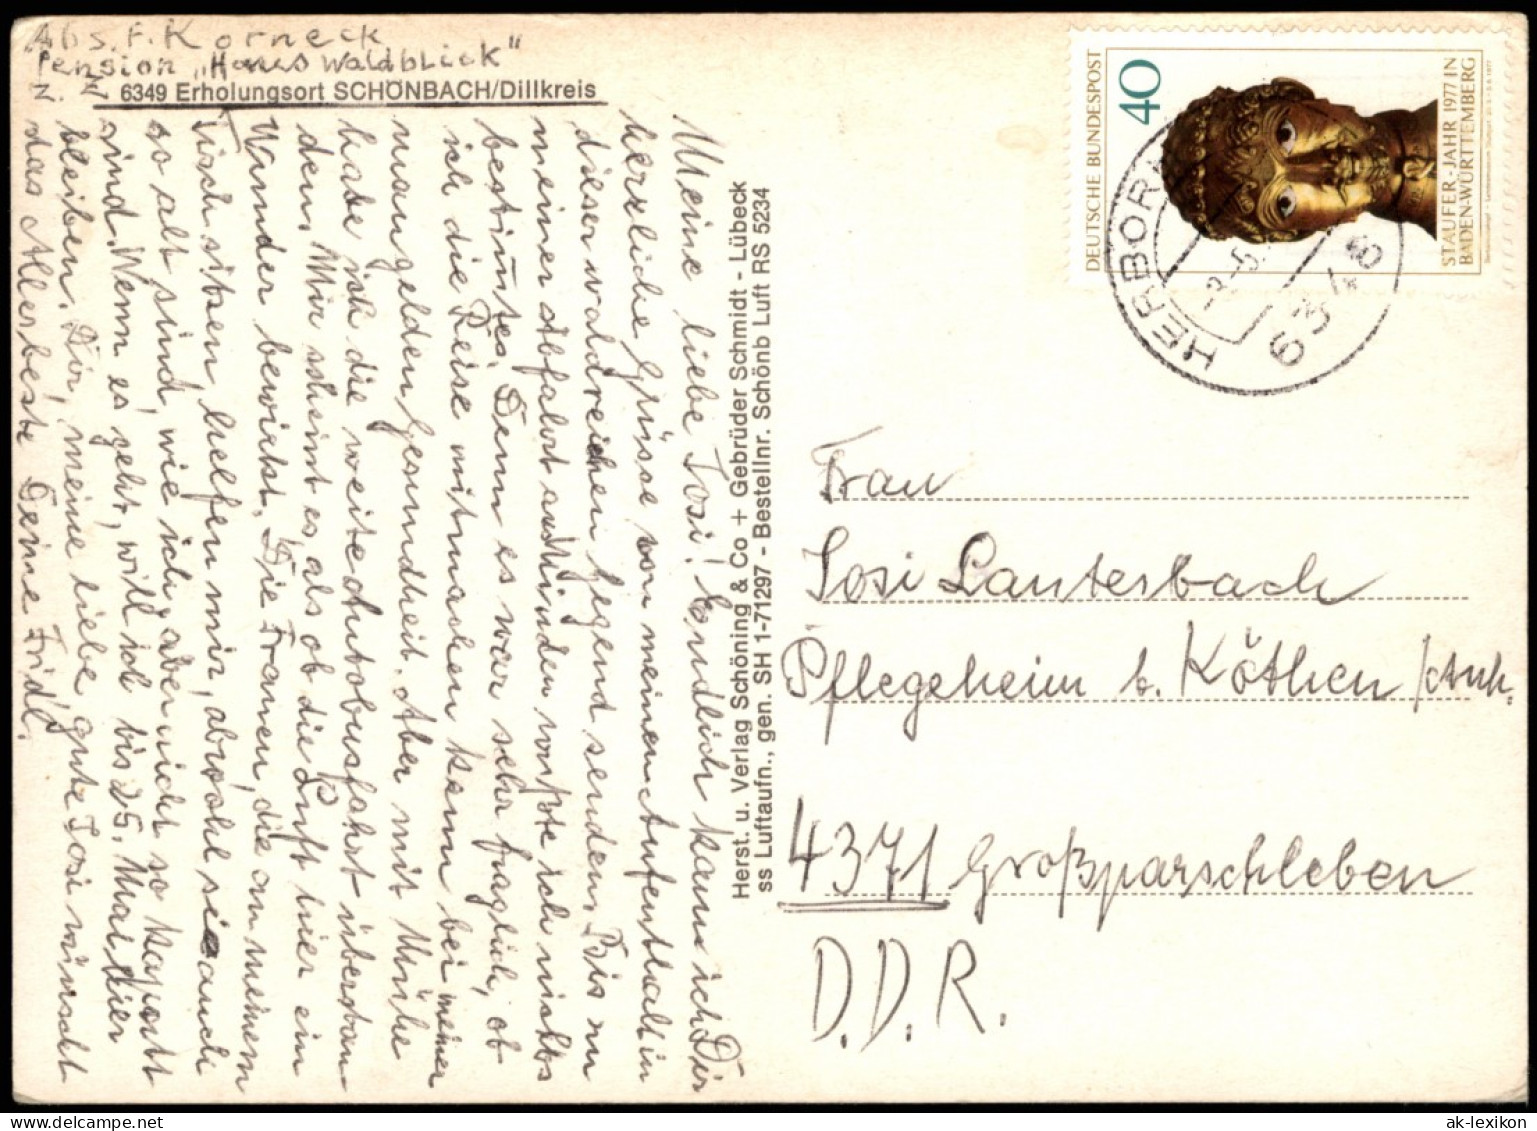 Abs. F. Korneck
Pension „Haus Waldblick"
Z. Zt.
6349 Erholungsort SCHÖNBACH/Dillkreis
Meine liebe Tosi! Endlich kann ich Dir
herzliche Grüsse von meinem Aufenthalt in
dieser waldreichen Gegend senden. Bis zu
meiner Abfahrt aus Minden wußte ich nichts
bestimmtes. Denn es war sehr fraglich, ob
ich die Reise mitmachen kann bei meiner
mangelden Gesundheit. Aber mit Mühe
habe ich die weite Autobusfahrt überstan-
den. Mir scheint es als ob die Luft hier ein
Wunder bewirkt. Die Frauen, die an meinem
Tisch sitzen helfen mir, abwohl sie auch
so alt sind, wie ich, aber nicht so kaputt
sind. Wenn es geht, will ich bis 25. Mai hier
bleiben. Dir, meine liebe, gute Tosi wünscht
das Allerbeste Deine Fridl.
Herst. u. Verlag Schöning & Co + Gebrüder Schmidt - Lübeck
ss Luftaufn., gen. SH 1-71297 - Bestellnr. Schönb Luft RS 5234
DEUTSCHE BUNDESPOST
40
STAUFER-JAHR 1977 IN
BADEN-WÜRTTEMBERG
HERBORN
6348
Frau
Tosi Lauterbach
Pflegeheim b. Köthen /Anh.
4371 Großparschleben
D.D.R.
ak-lexikon.com